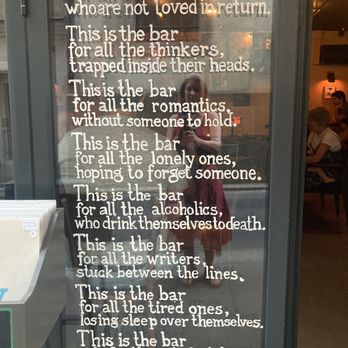 who are not loved in return.
This is the bar
for all the thinkers,
trapped inside their heads.
This is the bar
for all the romantics,
without someone to hold.
This is the bar
for all the lonely ones,
hoping to forget someone.
This is the bar
for all the alcoholics,
who drink themselves to death.
This is the bar
for all the writers,
stuck between the lines.
This is the bar
for all the tired ones,
losing sleep over themselves.
This is the bar